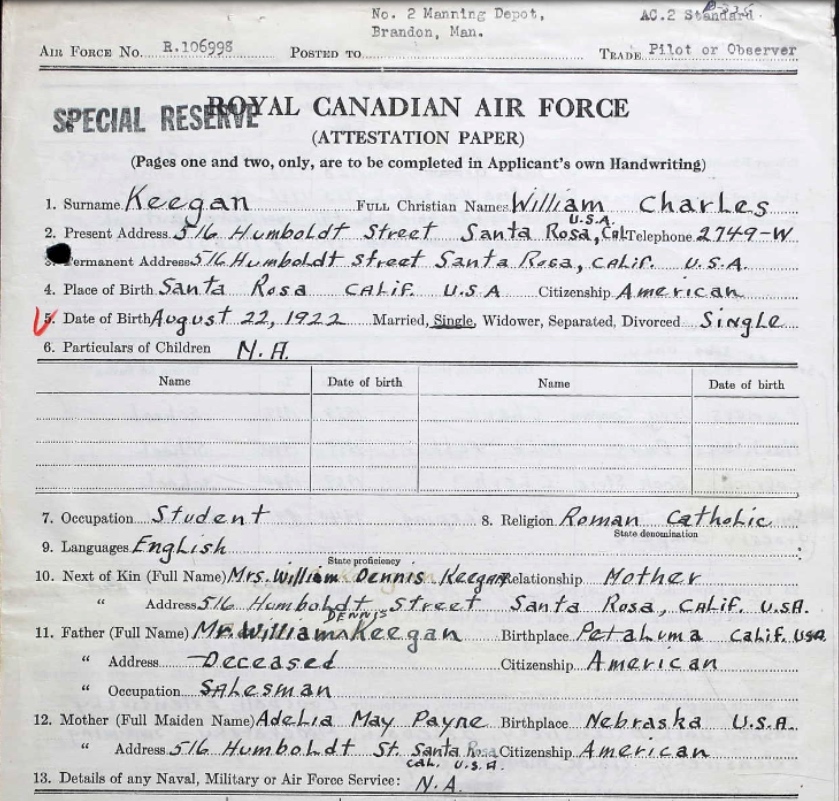 No. 2 Manning Depot, AC.2 Standard.
Brandon, Man.
AIR FORCE No. R.106998 POSTED TO TRADE Pilot or Observer
SPECIAL RESERVE
ROYAL CANADIAN AIR FORCE
(ATTESTATION PAPER)
(Pages one and two, only, are to be completed in Applicant's own Handwriting)
1. Surname Keegan FULL Christian Names William Charles
2. Present Address 516 Humboldt Street Santa Rosa, Cal. U.S.A. Telephone 2749-W
3. Permanent Address 516 Humboldt Street Santa Rosa, Calif. U.S.A.
4. Place of Birth Santa Rosa Calif. U.S.A Citizenship American
5. Date of Birth August 22, 1922 Married, Single, Widower, Separated, Divorced Single
6. Particulars of Children N.A.
Name Date of birth Name Date of birth
7. Occupation Student 8. Religion Roman Catholic
State denomination
9. Languages English
State proficiency
10. Next of Kin (Full Name) Mrs. William Dennis Keegan Relationship Mother
" Address 516 Humboldt Street Santa Rosa, Calif. U.S.A.
11. Father (Full Name) Mr. William Dennis Keegan Birthplace Petaluma Calif. USA
" Address Deceased Citizenship American
" Occupation Salesman
12. Mother (Full Maiden Name) Adelia May Payne Birthplace Nebraska U.S.A.
" Address 516 Humboldt St. Santa Rosa Cal. U.S.A. Citizenship American
13. Details of any Naval, Military or Air Force Service: N.A.